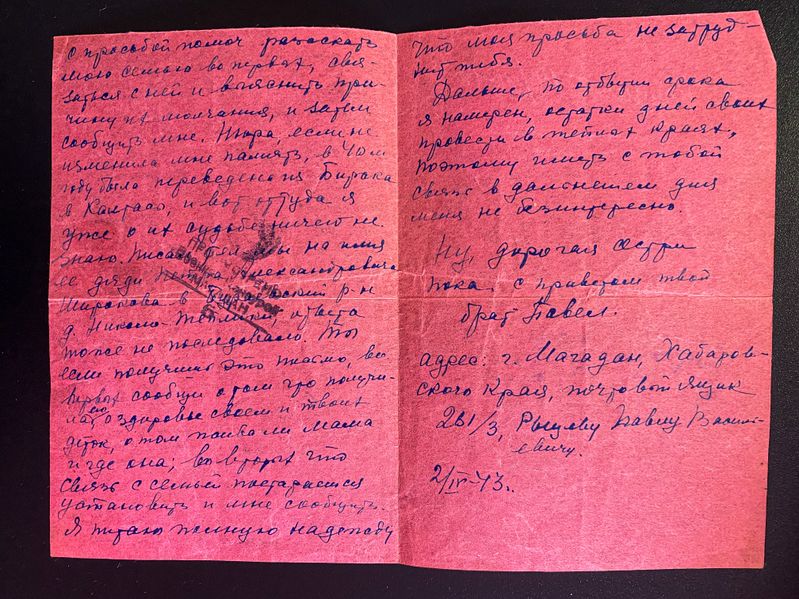 с просьбой помоч разыскать
мою семью во первых, свя-
заться с ней и выяснить при-
чину их молчания, и затем
сообщить мне. Шура, если не
изменила мне память, в 40-м
году была переведена из Бирска
в Калтасы, и вот оттуда я
уже о их судьбе ничего не
знаю. Писал на имя
ее дяди Александровича
Широкова в р-н
д. Николо ответа
тоже не последовало. Ты
если получишь это письмо, во
первых сообщи о том что получи-
ла, о здоровье своем и твоих
деток, о том жива ли Мама
и где она; во вторых что
связь с семьей постараешся
установить и мне сообщить.
Я питаю полную надежду
что моя просьба не затруд-
нит тебя.
Дальше, по отбытии срока
я намерен, остатки дней своих
провести в теплых краях,
поэтому иметь с тобой
связь в дальнейшем для
меня не безинтересно.
Ну, дорогая сестра
пока, с приветом твой
брат Павел.
адрес: г. Магадан, Хабаров-
ского Края, почтовый ящик
261/3, Павлу Василь-
евичу.
2/IV-43.
ПРОСМОТРЕНО
ВОЕННОЙ ЦЕНЗУРОЙ
МАГАДАН